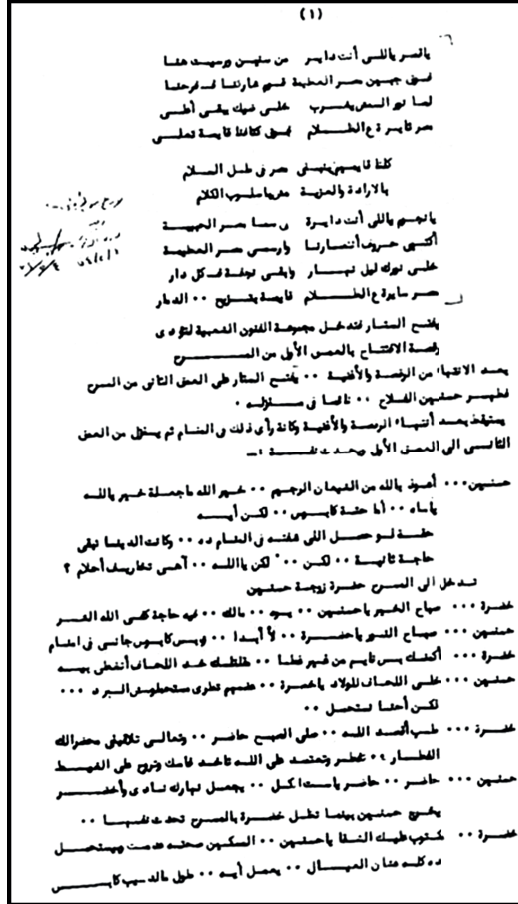 (١)
ياقمر ياللى أنت داير من سنين ورسيت هنا
فوق جبين مصر العظيمة قوم شاركنا فـ فرحنا
لما نور الشمس يغرب خلى ضيك يبقى أعلى
مصر ثايرة ع الظـلام فوق كتافنا قايمة تعلى
كلنا قايمين نبنى مصر فى ظل السلام
بالارادة والعزيمة مش بالكلام
يا نجوم ياللى أنت دايرة فى سما مصر الحبيبة
أكتبى حروف أنتصارنا وارسمى مصر العظيمة
خلى نورك ليل نهـار وابقى فـ كل دار
مصر سايرة ع الظـلام قايمة بتزيح ٠٠ الدمار
يفتح الستار فتدخل مجموعة الفنون الشعبية لتؤدى
رقصة الافتتاح بالعمق الأول من المسـرح
بعد الانتهاء من الرقصة والأغنية ٠٠ يفتح الستار على العمق الثانى من المسرح
فيظهر حسنين الفلاح ٠٠ نائما فى منزله ٠
يستيقظ بعد أنتهاء الرقصة والأغنية وكانة رأى ذلك فى المنام ثم ينزل من العمق
الثانـى الى العمق الأول ويحدث نفسـة :ـ
حسنين ٠٠٠ أعوذ بالله من الشيطان الرجيم ٠٠ خير الله ماجعلة خير يالله
ياساه ٠٠ أما حتة كابـوس ٠٠ لكن أيـه
حقـة لـو حصـل اللى شفتـه فى المنـام ده ٠٠ وكانت الدينـا تبقى
حاجـة ثانيـة ٠٠ لكـن ٠٠ لكن ياالله ٠٠ أهـى تخاريـف أحلام ؟
تـدخل الى المسرح خضرة زوجة حسنين
خضرة ٠٠٠ صباح الخير ياحسنين ٠٠ ٠٠ مالك ٠٠ فيه حاجة كفى الله الشـر
حسنين ٠٠٠ صبـاح النـور ياخضـرة ٠٠ لأ أبـدا ٠٠ كابـوس جانـى فى المنام
خضرة ٠٠٠ بـس نايـم من غيـر غطـا ٠٠ خـد اللحـاف أتغطى بيـه
حسنين ٠٠٠ خلـى اللحـاف للولاد ياخضـرة ٠٠ البـرد ٠٠٠
لكـن أحنـا نستحمل ٠٠
خضـرة ٠٠٠ طـب أقصـد اللـه ٠٠ صلى الصبـح حاضـر ٠٠ وتعالـى تلاقينى محضرالك
الفطـار ٠٠ تفطـر وتعتمد على اللـه تاخـد فاسك وتروح على الغيـط
حسنين ٠٠٠ حاضر ٠٠ حاضر ياسـت الكـل ٠٠ يجعـل نهـارك نـادى وأخضـر
يخرج حسنين بينما تظل خضـرة بالمسرح تحدث نفسهـا ٠٠
خضـرة ٠٠ مكتوب عليـك الشقـا ياحسنين ٠٠ السكيـن صحتـه وبيستحمـل
ده كلـه عشان العيـال ٠٠ يعمل أيـه ٠٠ طـول